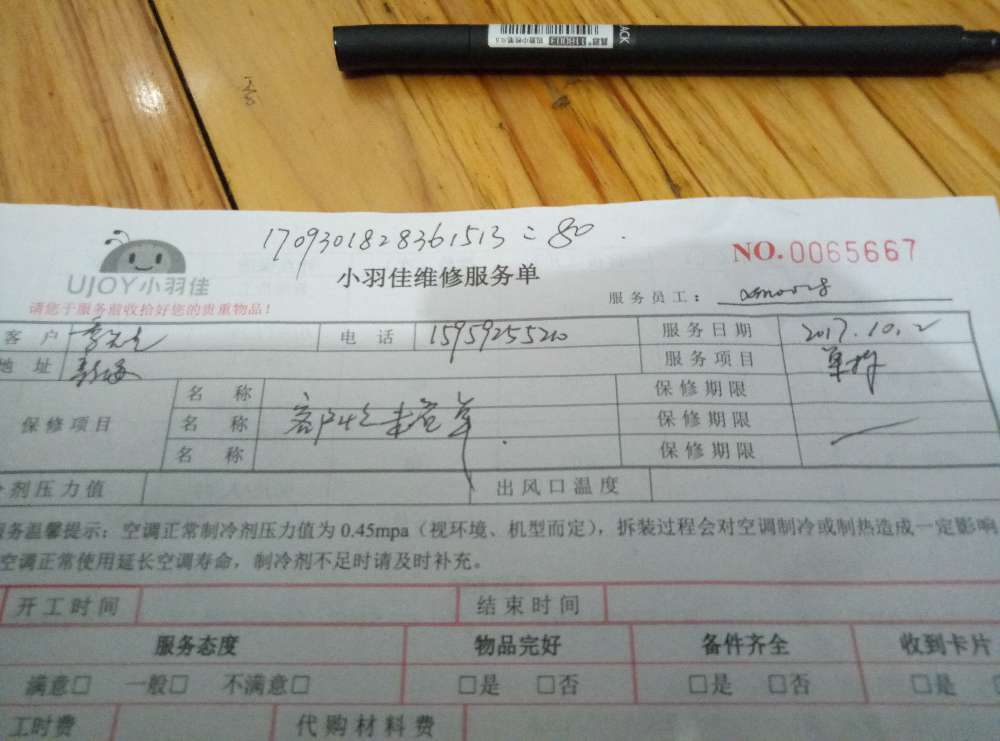 1709301828361513 = 80
NO.0065667
UJOY小羽佳
小羽佳维修服务单
服务员工：
请您于服务前收拾好您的贵重物品！
客 户 李先生 电 话 15959255210 服务日期 2017.10.2
地 址 服务项目 单拆
保修项目 名 称 保修期限
名 称 保修期限
名 称 保修期限
剂压力值 出风口温度
服务温馨提示：空调正常制冷剂压力值为 0.45mpa（视环境、机型而定），拆装过程会对空调制冷或制热造成一定影响
空调正常使用延长空调寿命，制冷剂不足时请及时补充。
开工时间 结束时间
服务态度 物品完好 备件齐全 收到卡片
满意□ 一般□ 不满意□ □是 □否 □是 □否 □是
工时费 代购材料费